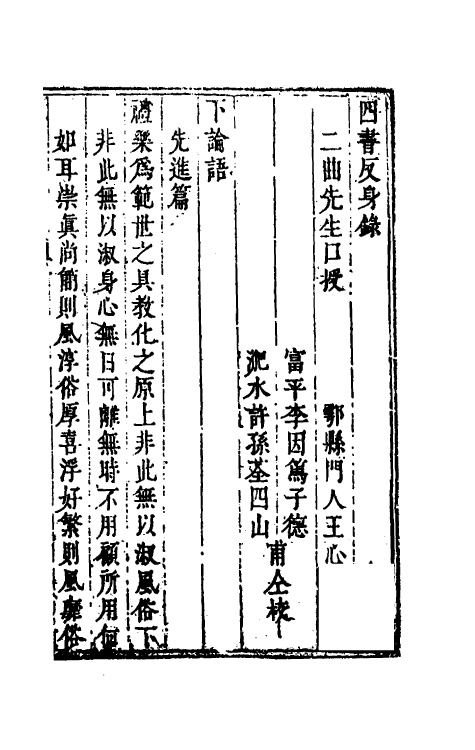 四書反身錄
二曲先生口授 鄠縣門人王心
富平李因篤子德
淝水許孫荃四山
甫仝校
下論語
先進篇
禮樂爲範世之具教化之原上非此無以淑風俗下
非此無以淑身心無日可離無時不用顧所用何
如耳崇眞尚簡則風淳俗厚喜浮好繁則風靡俗